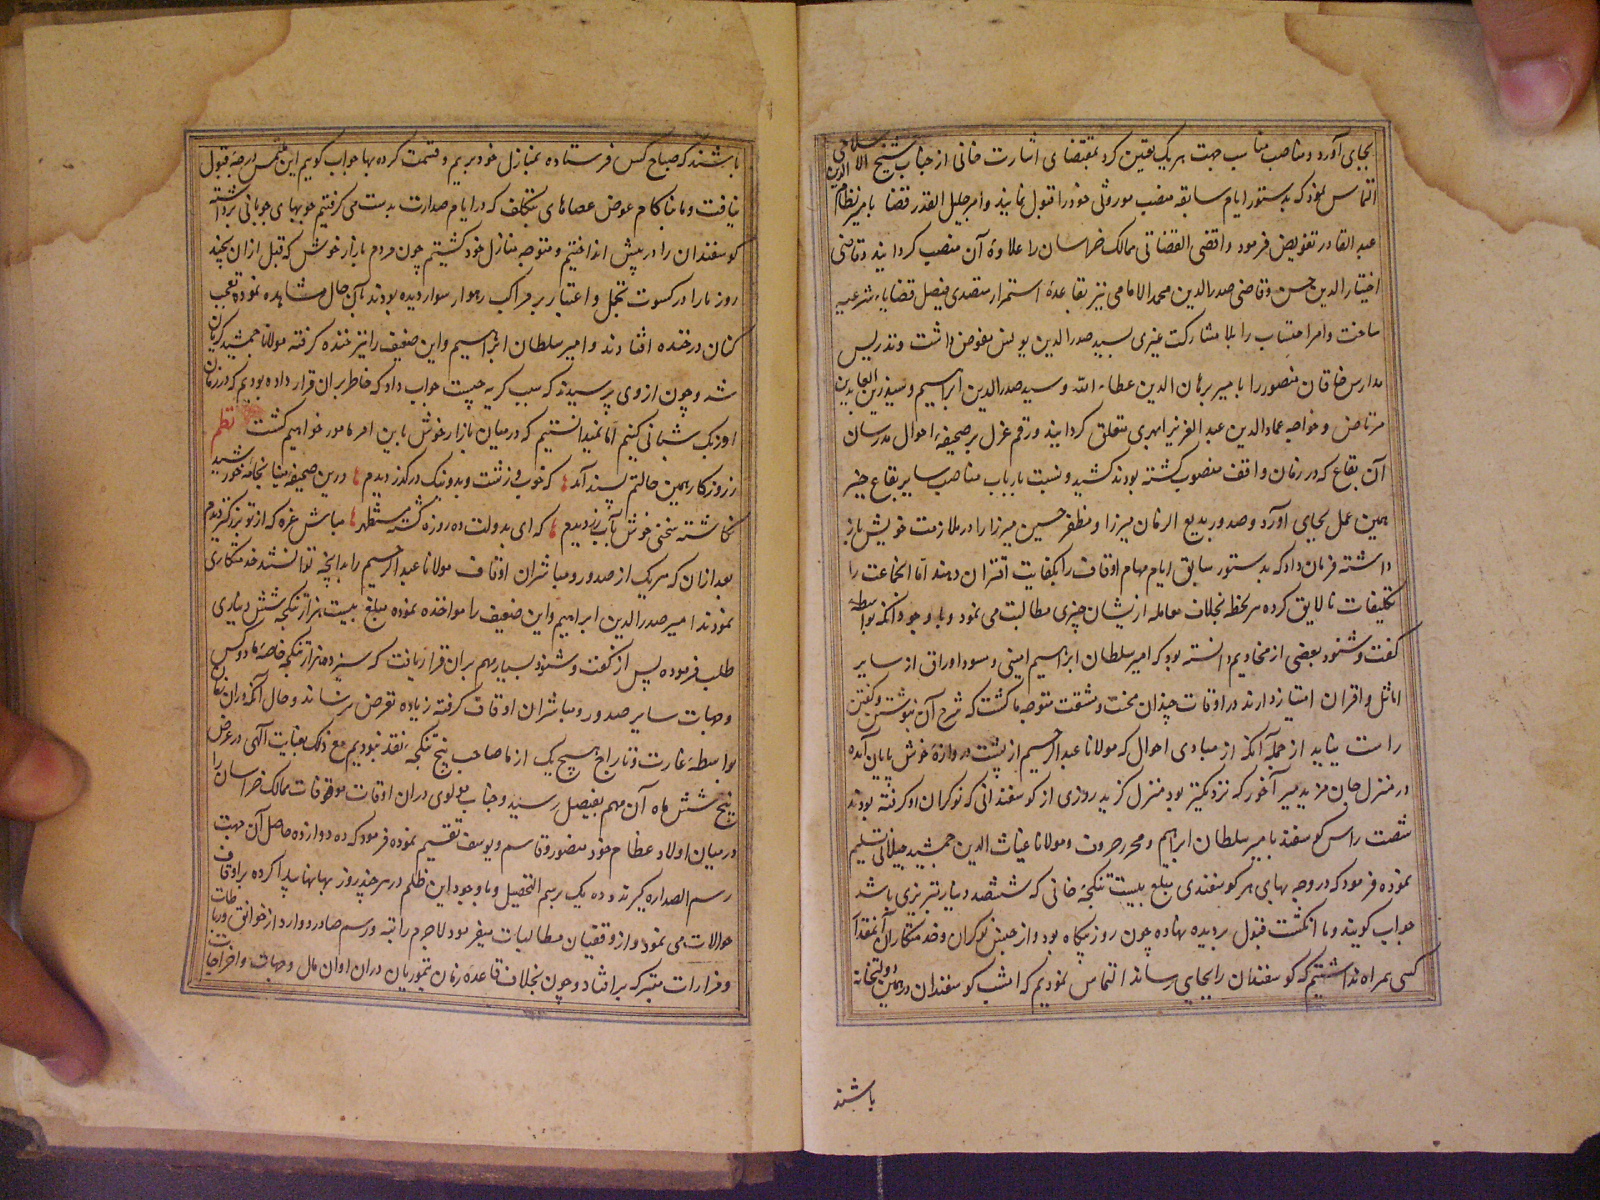 بجای آورد و مناصب مناسب جهت هر یک تعیین کرد بمقتضای اشارت خانی از جناب شیخ الاسلامی
التماس نمود که بدستور ایام سابقه منصب موروثی خود را قبول نمایند و امر جلیل القدر قضا بامیر نظام الدین
عبد القادر تفویض فرمود و اقضی القضاتی ممالک خراسان را علاوهٔ آن منصب گردانید و قاضی
اختیار الدین حسن و قاضی صدر الدین محمد الامامی نیز بقاعدهٔ استمرار متصدی فیصل قضایاء شرعیه
ساخت و امر احتساب را بلا مشارکت غیری بسید صدر الدین یونس مفوض داشت و تدریس
مدارس خاقان منصور را بامیر برهان الدین عطاء الله و سید صدر الدین ابراهیم و سید زین العابدین
مرتاض و خواجه عماد الدین عبد العزیز ابهری متعلق گردانید و رقم عزل بر صحیفهٔ احوال مدرسان
آن بقاع که در زمان واقف منصوب گشته بودند کشید و نسبت بارباب مناصب سایر بقاع خیر
همین عمل بجای آورد و صدور بدیع الزمان میرزا و مظفر حسین میرزا را در ملازمت خویش باز
داشته فرمان داد که بدستور سابق ایام مهام اوقاف را بکفایت اقتران دهند اما انجماعت را
تکلیفات نالایق کرده هر لحظه بخلاف معامله ازیشان چیزی مطالبت می نمود و با وجود آنکه بواسطهٔ
گفت و شنود بعضی از مخادیم دانسته بود که امیر سلطان ابراهیم امینی و مسود اوراق از سایر
اماثل و اقران امتیاز دارند در اوقات چندان محنت و مشقت متوجه ما گشت که شرح آن بنوشتن و گفتن
راست نیاید از جمله آنکه از مبادی احوال که مولانا عبد الرحیم از پشت دروازهٔ خوش پایان آمده
در منزل جان مزید میر آخور که نزدیکتر بود منزل گزید روزی از گوسفندانی که نوکران او گرفته بودند
شصت راس گوسفند بامیر سلطان ابراهیم و محرر حروف و مولانا غیاث الدین جمشید جیلانی تسلیم
نموده فرمود که در وجه بهای هر گوسفندی مبلغ بیست تنگچهٔ خانی که ششصد دینار تبریزی باشد
جواب گویند و ما انگشت قبول بر دیده نهاده چون روز بیگاه بود و از جنس نوکران و خدمتکاران آنمقدار
کسی همراه نداشتیم که گوسفندان را بجای رساند التماس نمودیم که امشب گوسفندان در همین دولتخانه
باشند
باشند که صباح کس فرستاده بمنازل خود بریم و قسمت کرده بها جواب گوییم این ملتمس درجهٔ قبول
نیافت و ما ناکام عوض عصاهای تکلف که در ایام صدارت بدست می گرفتیم چوبهای چوپانی برداشته
گوسفندان را در پیش انداختیم و متوجه منازل خود گشتیم چون مردم بازار خوش که قبل از ان بچند
روز ما را در کسوت تجمل و اعتبار بر مراکب رهوار سوار دیده بودند آن حال مشاهده نموده تعجب
کنان در خنده افتادند و امیر سلطان ابراهیم و این ضعیف را نیز خنده گرفته مولانا جمشید گریان
شد و چون از وی پرسیدند که سبب گریه چیست جواب داد که خاطر بران قرار داده بودیم که در زمان
اوزبک شبانی کنیم اما نمیدانستیم که در میان بازار خوش باین امر مامور خواهیم گشت نظم
ز روزگار همین حالتم پسند آمد که خوب و زشت و بد و نیک در گذر دیدم درین صحیفهٔ مینا بخامهٔ خورشید
نگاشته سخنی خوش بآب زر دیدم که ای بدولت ده روزه گشته مستظهر مباش غره که از تو بزرگتر دیدم
بعد از ان که هر یک از صدور و مباشران اوقاف مولانا عبد الرحیم را بدانچه توانستند خدمتکاری
نمودند امیر صدر الدین ابراهیم و این ضعیف را مواخذه نموده مبلغ بیست هزار تنگچه شش دیناری
طلب فرموده پس از گفت و شنود بسیار مهم بران قرار یافت که سیزده هزار تنگچه خاصهٔ ما دو کس
وجهات سایر صدور و مباشران اوقاف گرفته زیاده تعرض نرساند و حال آنکه دران زمان
بواسطهٔ غارت و تاراج هیچ یک از ما صاحب پنج تنگچه نقد نبودیم مع ذلک بعنایت الهی در عرض
پنج شش ماه آن مهم بفیصل رسید و جناب مولوی دران اوقات موقوفات ممالک خراسان را
در میان اولاد عظام خود منصور و قاسم و یوسف تقسیم نموده فرمود که ده دوازده حاصل آن جهت
رسم الصداره گیرند و ده یک برسم التحصیل و با وجود این ظلم در هر چند روز بهانها پیدا کرده بر اوقاف
حوالات می نمود و از وقفیان مطالبات میفرمود لاجرم راتبه و رسم صادر و وارد از خوانق و رباطات
و مزارات متبرکه بر افتاد و چون بخلاف قاعدهٔ زمان تیموریان دران اوان مال و جهات و اخراجات